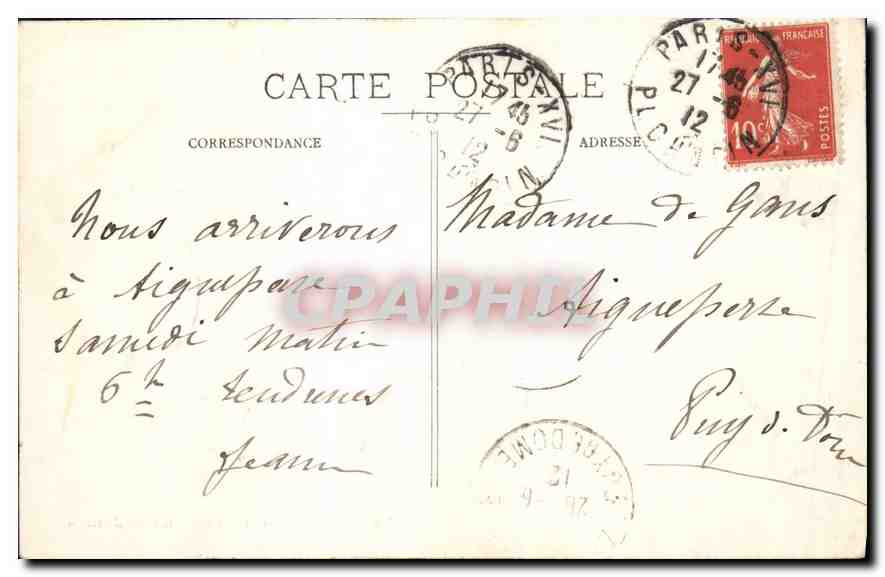 CARTE POSTALE
CORRESPONDANCE
ADRESSE
PARIS-XVI
17 45
27 -6
12
PARIS-XVI
17 45
27 -6
12
FRANÇAISE
10c
POSTES
Nous arriverons
à Aigueperse
Samedi matin
6h tendresses
Jeanne
Madame de Gans
Aigueperse
Puy d. Dôme
CPAPHIL
PUY DE DOME
12
28 -6